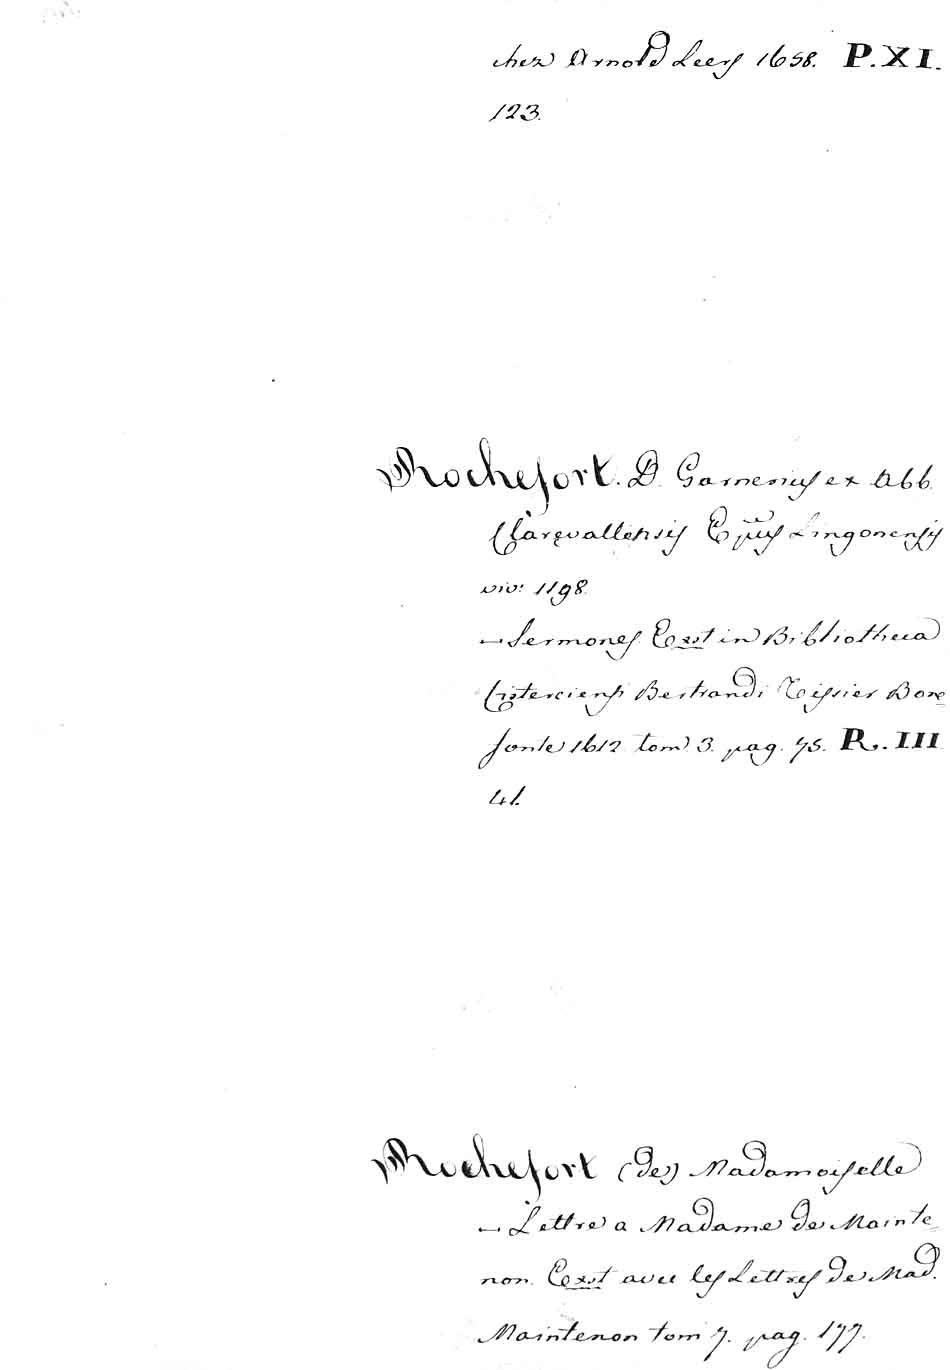 chez Arnold Leers 1658. P. XI.
123.
Rochefort. D. Garnerius ex Abb.
Clarævallensis Epus Lingonensis
viv: 1198.
— Sermones. Exst in Bibliotheca
Cisterciens Bertrandi Tissier Bone
fonte 1612 tom 3. pag. 75. R. III
41.
Rochefort (de) Madamoiselle
— Lettre a Madame de Mainte
non. Exst avec les Lettres de Mad.
Maintenon tom 7. pag. 177.